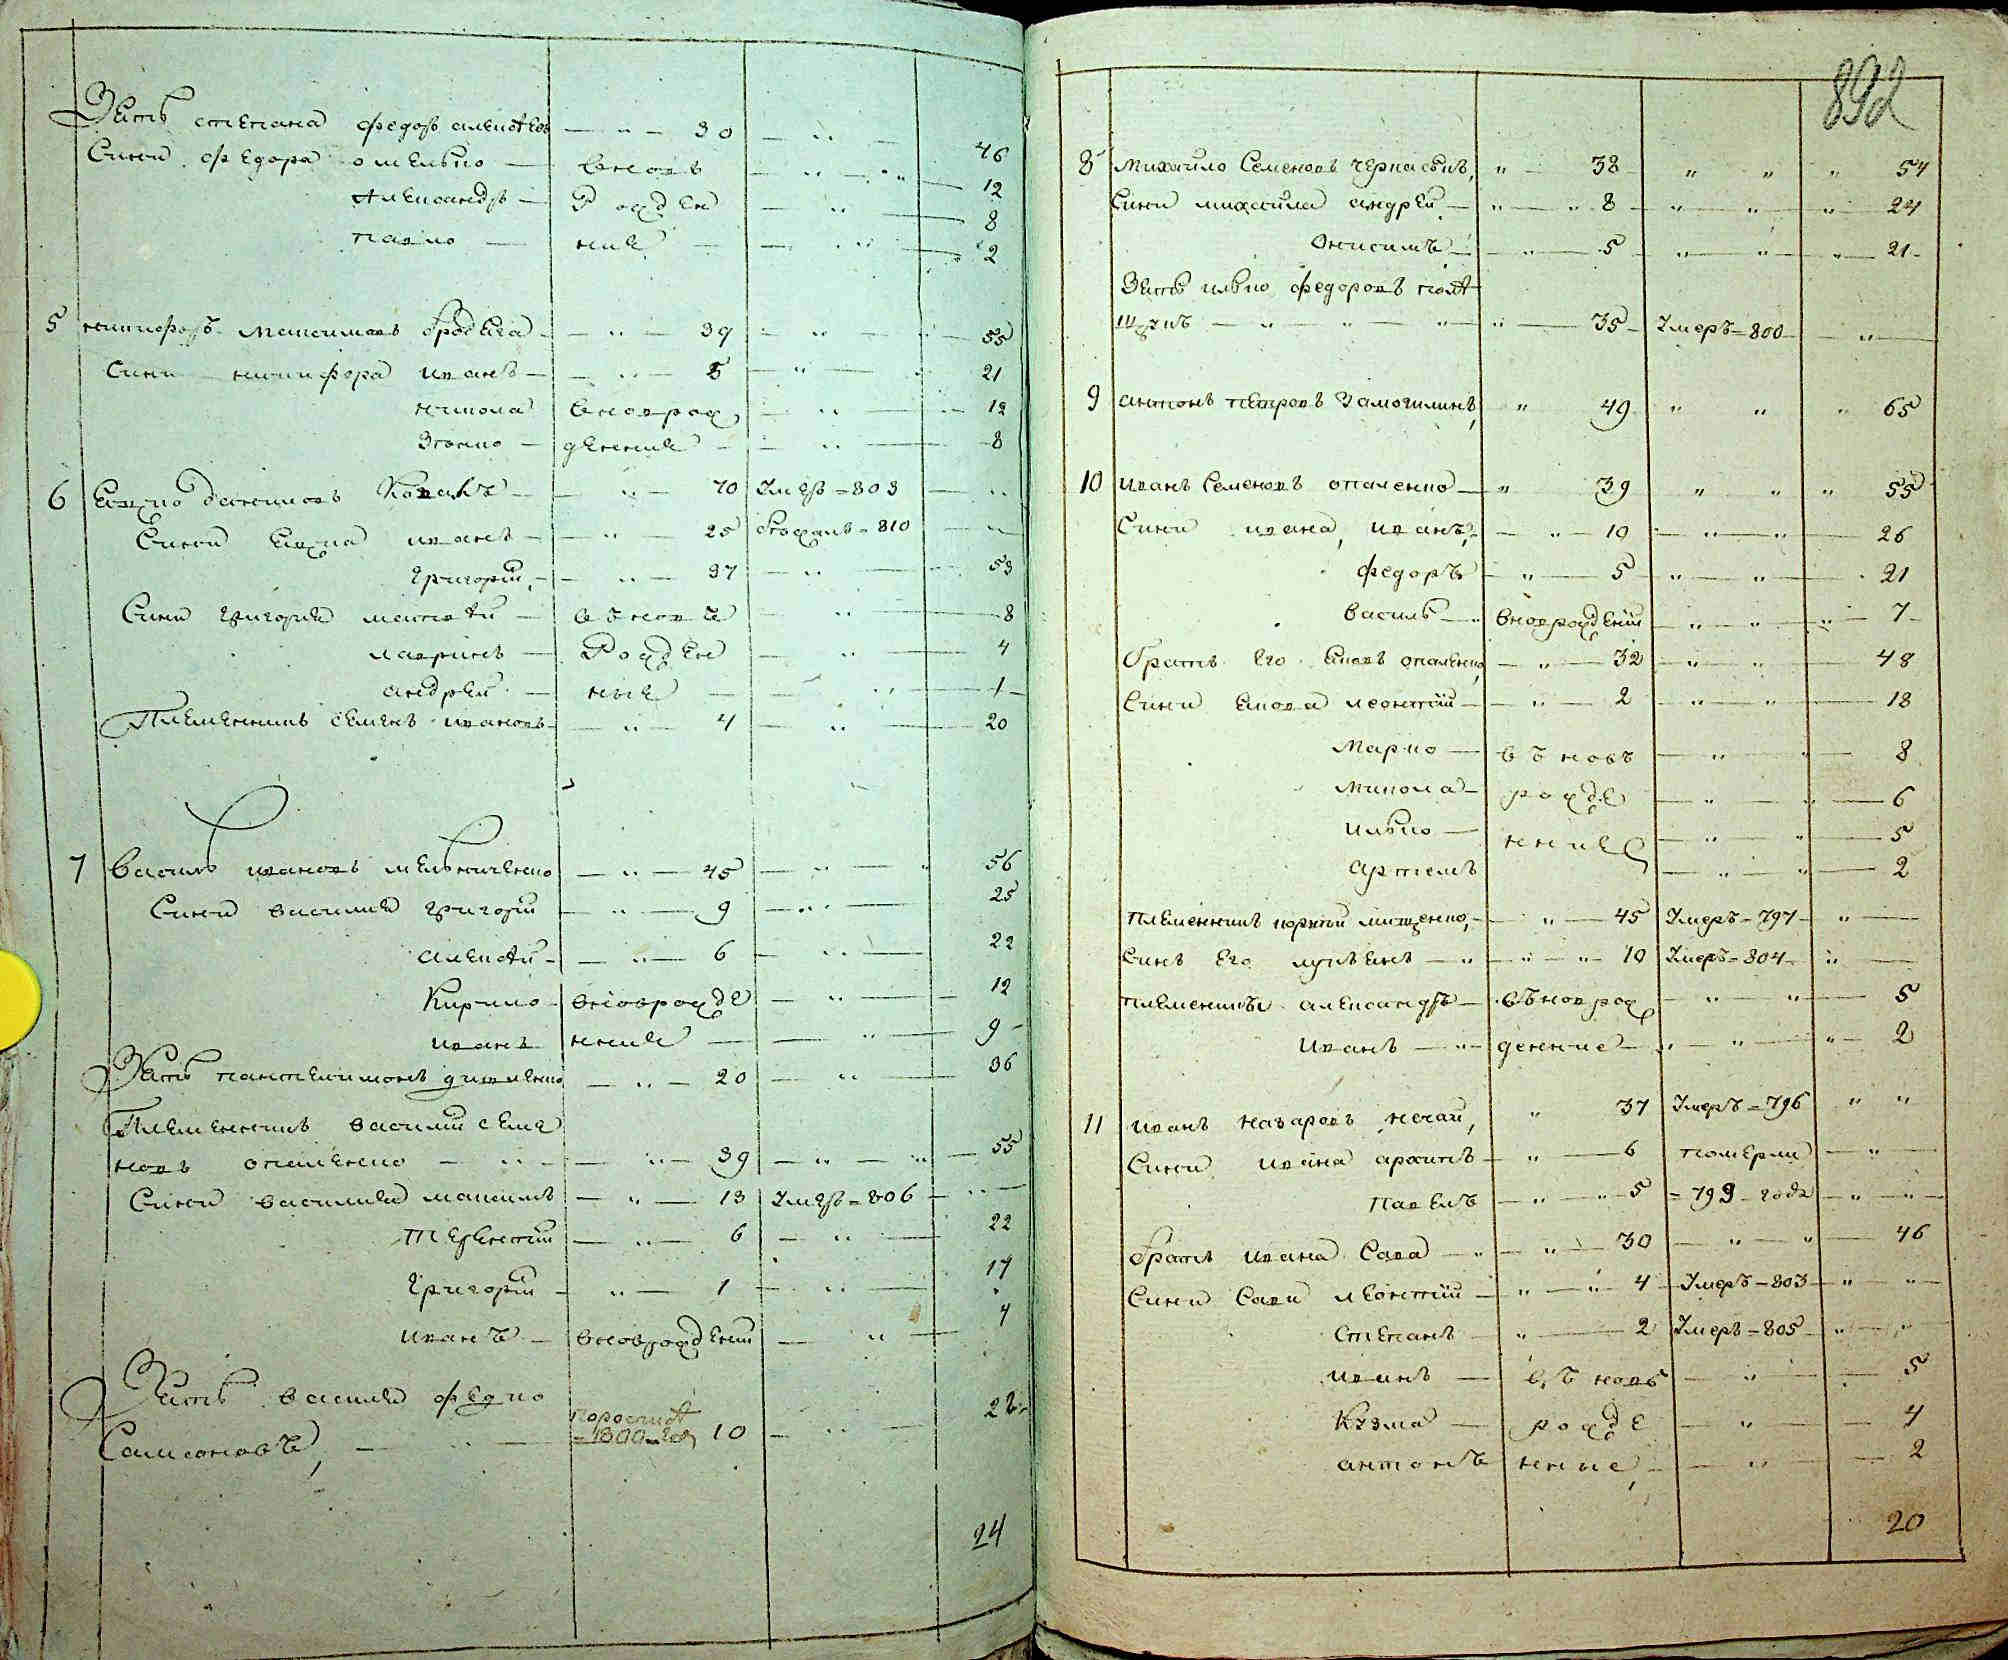 Зять степана федоръ алексѣевъ — 30 — 46
Сини федора омелько — вновъ — 12
Александръ — рожден — 8
павло — ние — 2
5 никифоръ Максимовъ бродека — 39 — 55
Сини никифора иванъ — 5 — 21
никола вноврож — 12
дение — 8
6 даниловъ Коваль — 70 умеръ = 803
Сини иванъ — 25 810
григорий — 37 — 53
Сини григория матвѣй — въ новъ — 8
лавринъ — рожден — 4
андрей — ные — 1
Племенникъ семенъ ивановъ — 4 — 20
7 василь ивановъ мельниченко — 45 — 56
Сини василия григорий — 9 — 25
алексѣй — 6 — 22
Кирило — вноврожде — 12
иванъ нние — 9
Зять пантелимонъ — 20 — 36
Племенникъ василий семе
новъ опаленко — 39 — 55
Сини василия максимъ — 13 умеръ = 806
Терентий — 6 — 22
григорий — 1 — 17
иванъ — вноврождений — 4
Зять василия федко
Самсоновъ, — 10
24
892
8 михайло Семеновъ — 38 — 54
Сини михайла андрей — 8 — 24
Онисимъ — 5 — 21
Зять илько федоровъ
35 умеръ = 800
9 антонъ петровъ Замогилинъ, 49 — 65
10 иванъ Семеновъ опаленко — 39 — 55
Сини ивана, иванъ, — 10 — 26
федоръ — 5 — 21
василь — вноврождений — 7
братъ его яковъ опаленко — 32 — 48
Сини якова леонтий — 2 — 18
Марко — въ новъ — 8
микола — рожде — 6
илько — нние — 5
артемъ — 2
племенникъ мищенко, — 45 умеръ = 797
Синъ его лукьянъ — 10 умеръ = 804
племенникъ александръ — въноврож — 5
иванъ — дение — 2
11 иванъ назаровъ нечай, 37 умеръ = 796
Сини ивана архипъ — 6 померли
павелъ — 5 = 799 года
братъ ивана Сава — 30 — 46
Сини Сави леонтий — 4 умеръ = 803
степанъ — 2 умеръ = 805
иванъ — въ новъ — 5
Кузма — рожде — 4
антонъ нные, — 2
20